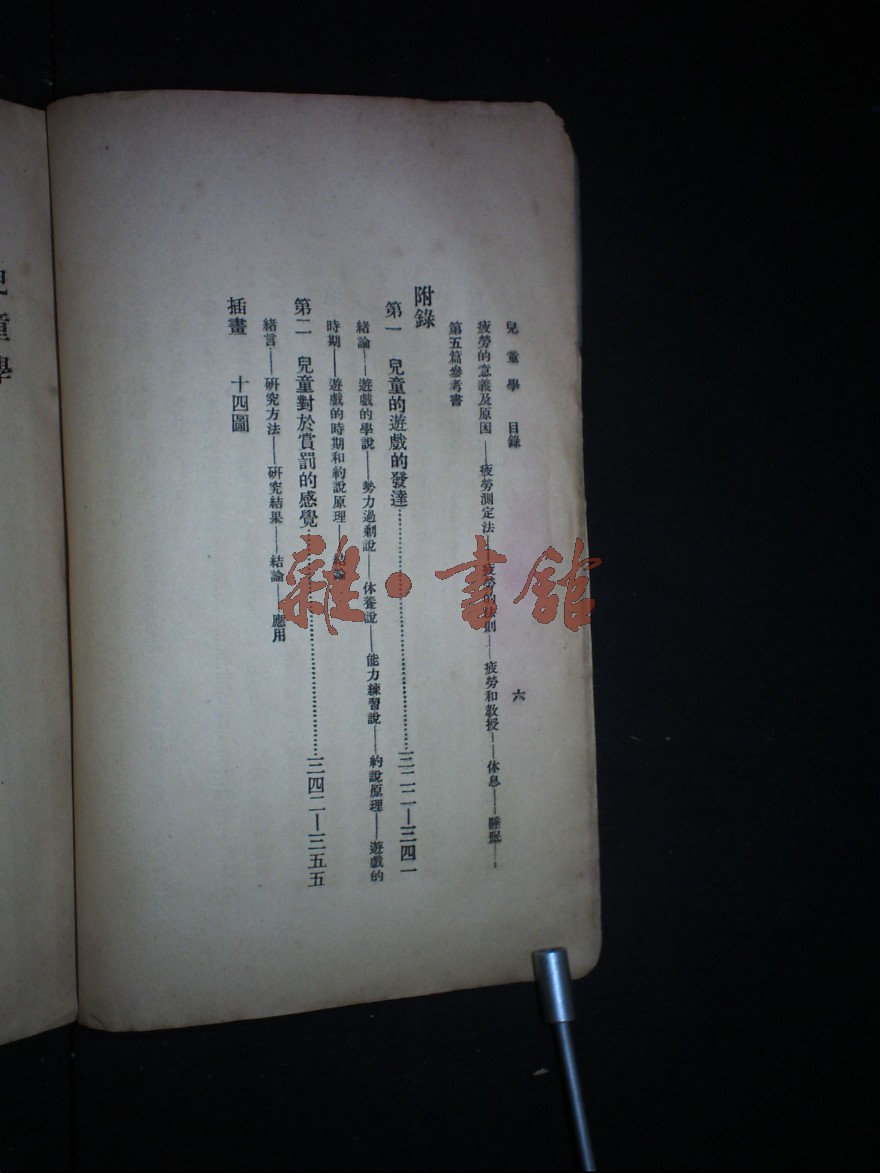 兒童學 目錄 六
疲勞的意義及原因——疲勞測定法——疲勞的法則——疲勞和教授——休息——睡眠——
第五篇參考書
附錄
第一 兒童的遊戲的發達……三二二—三四一
緒論——遊戲的學說——勢力過剩說——休養說——能力練習說——約說原理——遊戲的
時期——遊戲的時期和約說原理——結論
第二 兒童對於賞罰的感覺……三四二—三五五
緒言——研究方法——研究結果——結論——應用
插畫 十四圖
兒童學
雜·書館